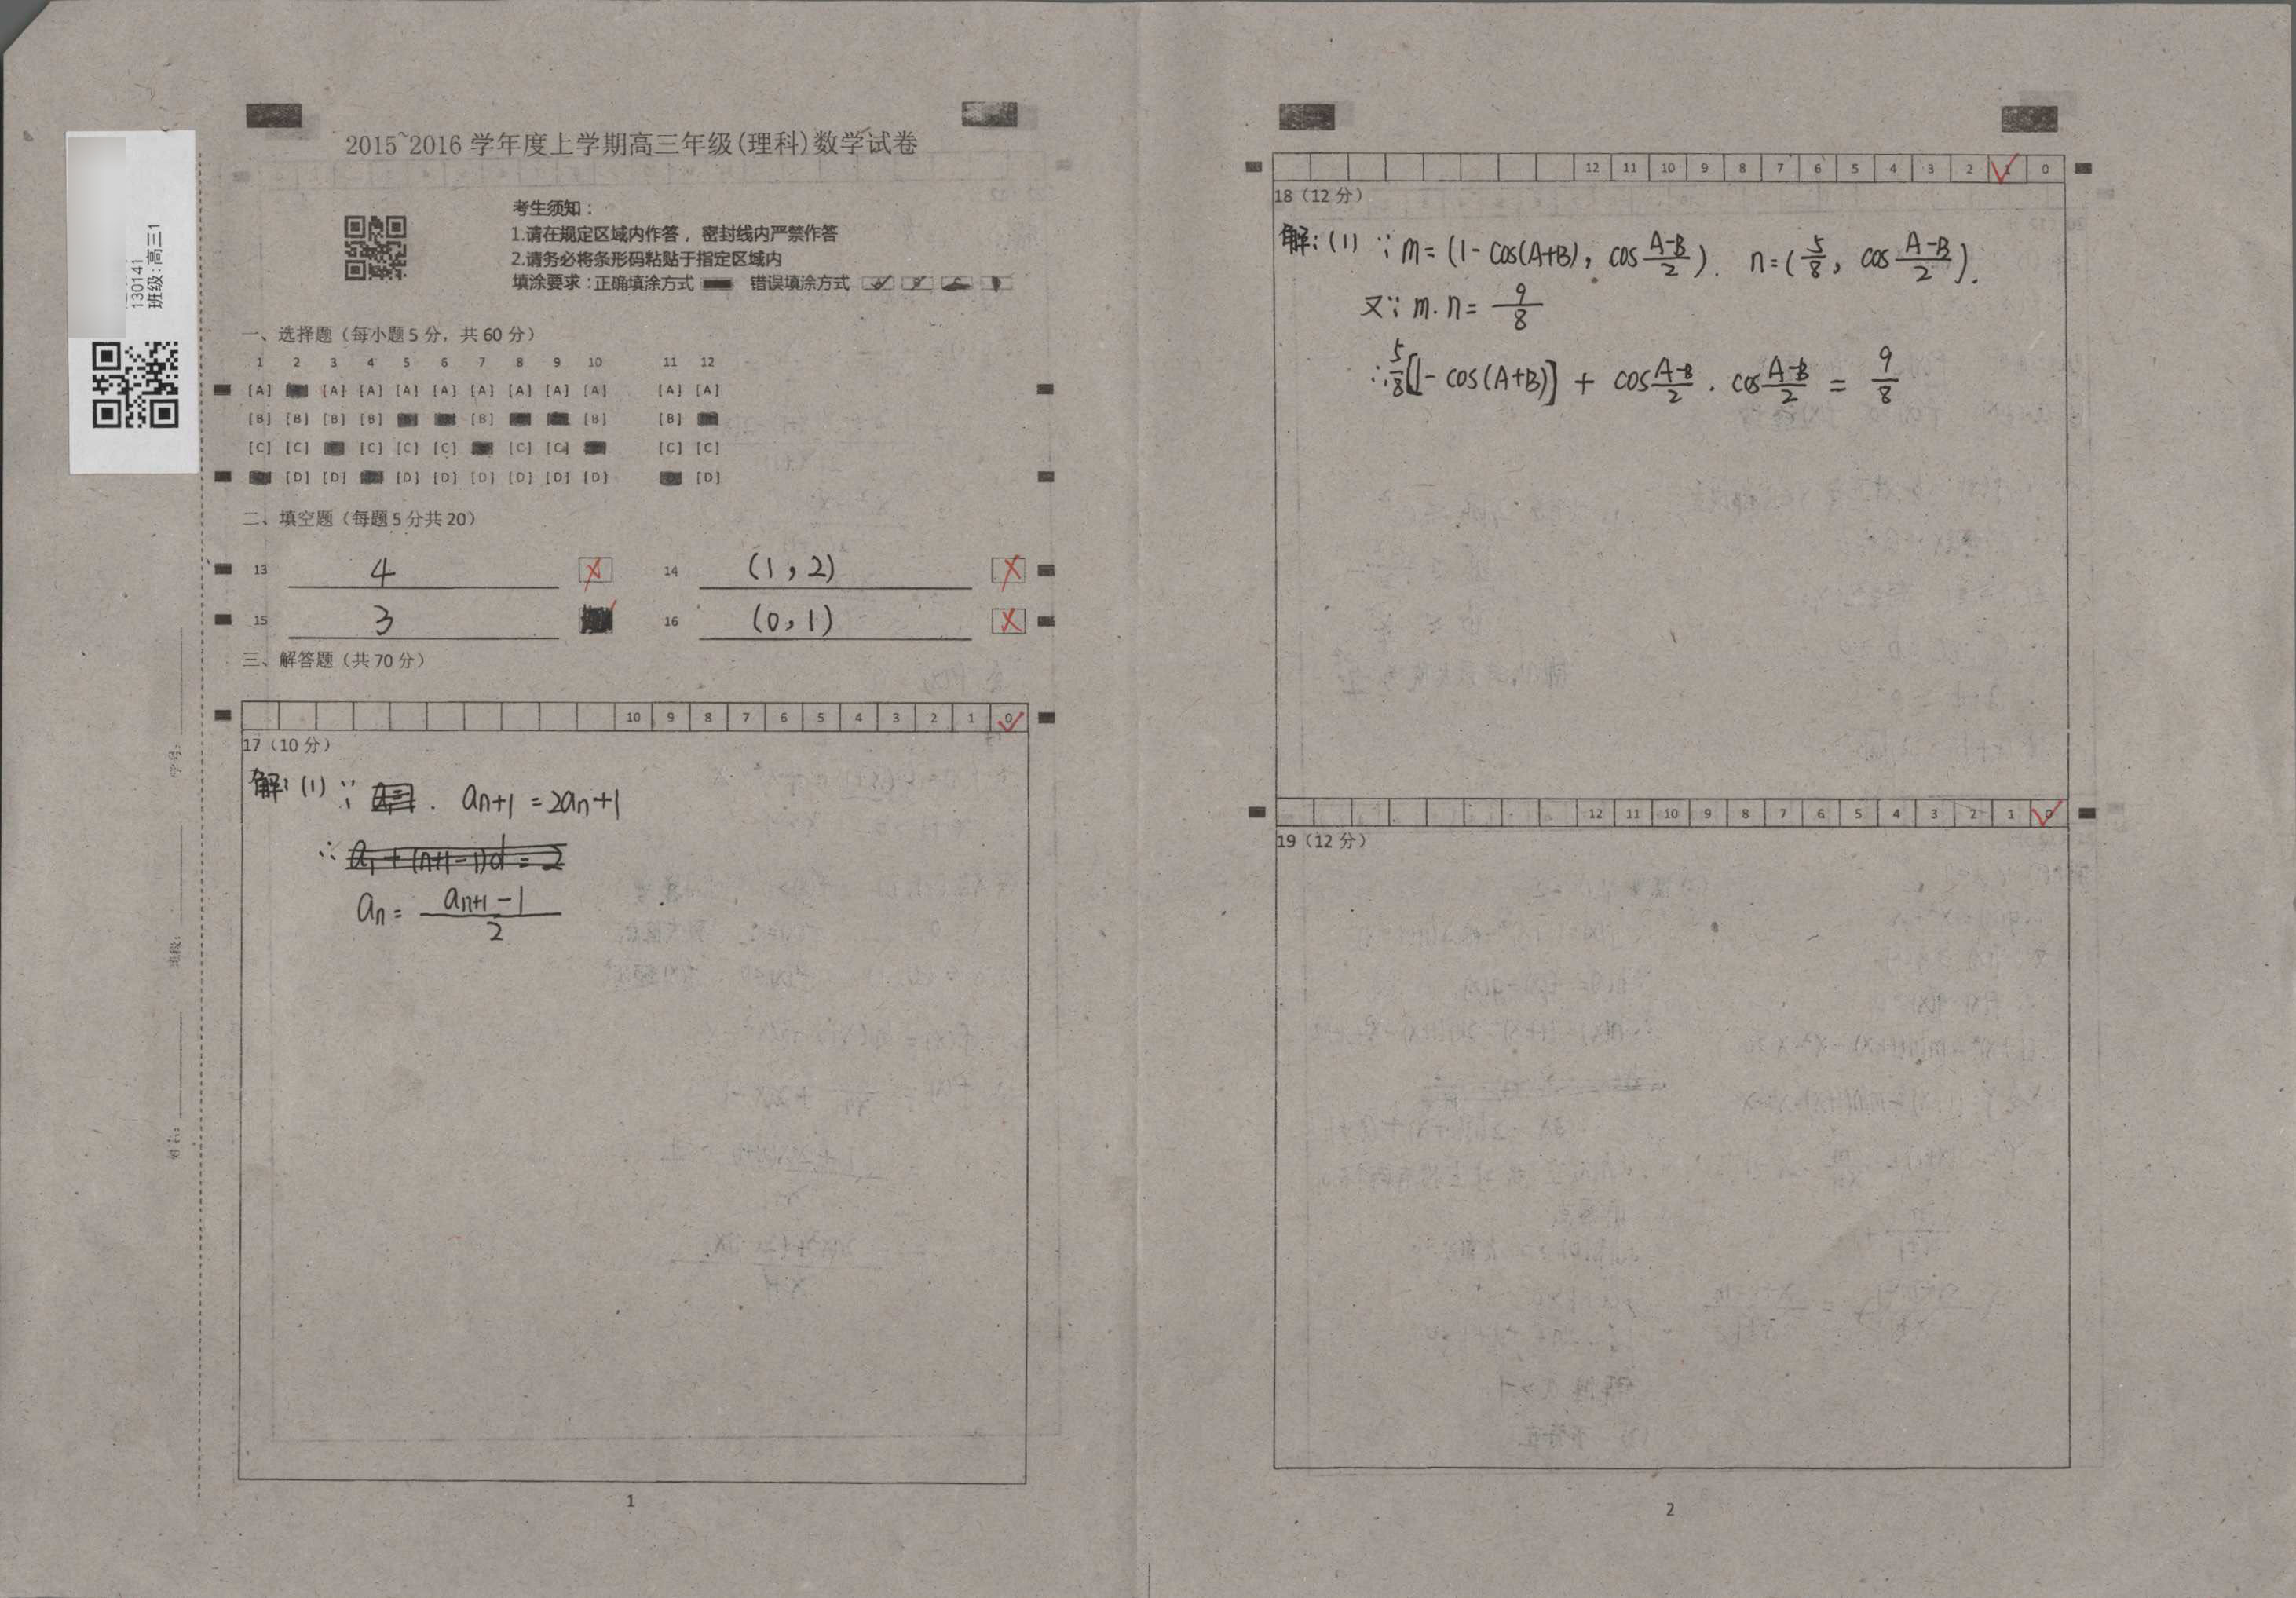 2015~2016 学年度上学期高三年级(理科)数学试卷
130141
班级:高三1
考生须知：
1.请在规定区域内作答，密封线内严禁作答
2.请务必将条形码粘贴于指定区域内
填涂要求：正确填涂方式 错误填涂方式
一、选择题（每小题 5 分，共 60 分）
1 2 3 4 5 6 7 8 9 10 11 12
[A] [A] [A] [A] [A] [A] [A] [A] [A] [A] [A]
[B] [B] [B] [B] [B] [B] [B]
[C] [C] [C] [C] [C] [C] [C] [C] [C]
[D] [D] [D] [D] [D] [D] [D] [D] [D]
二、填空题（每题 5 分共 20）
13 4 14 (1，2)
15 3 16 (0，1)
三、解答题（共 70 分）
10 9 8 7 6 5 4 3 2 1 0
17（10 分）
解：(1) ∵ an+1 = 2an+1
∴ a1+(n+1-1)d=2
an = \frac{an+1 - 1}{2}
1
学号：
班级：
姓名：
12 11 10 9 8 7 6 5 4 3 2 1 0
18（12 分）
解：(1) ∵ m = (1- cos(A+B)，cos\frac{A-B}{2})． n = (\frac{5}{8}，cos\frac{A-B}{2})．
又∵ m·n = \frac{9}{8}
∴ \frac{5}{8}[1- cos(A+B)] + cos\frac{A-B}{2} · cos\frac{A-B}{2} = \frac{9}{8}
12 11 10 9 8 7 6 5 4 3 2 1 0
19（12 分）
2